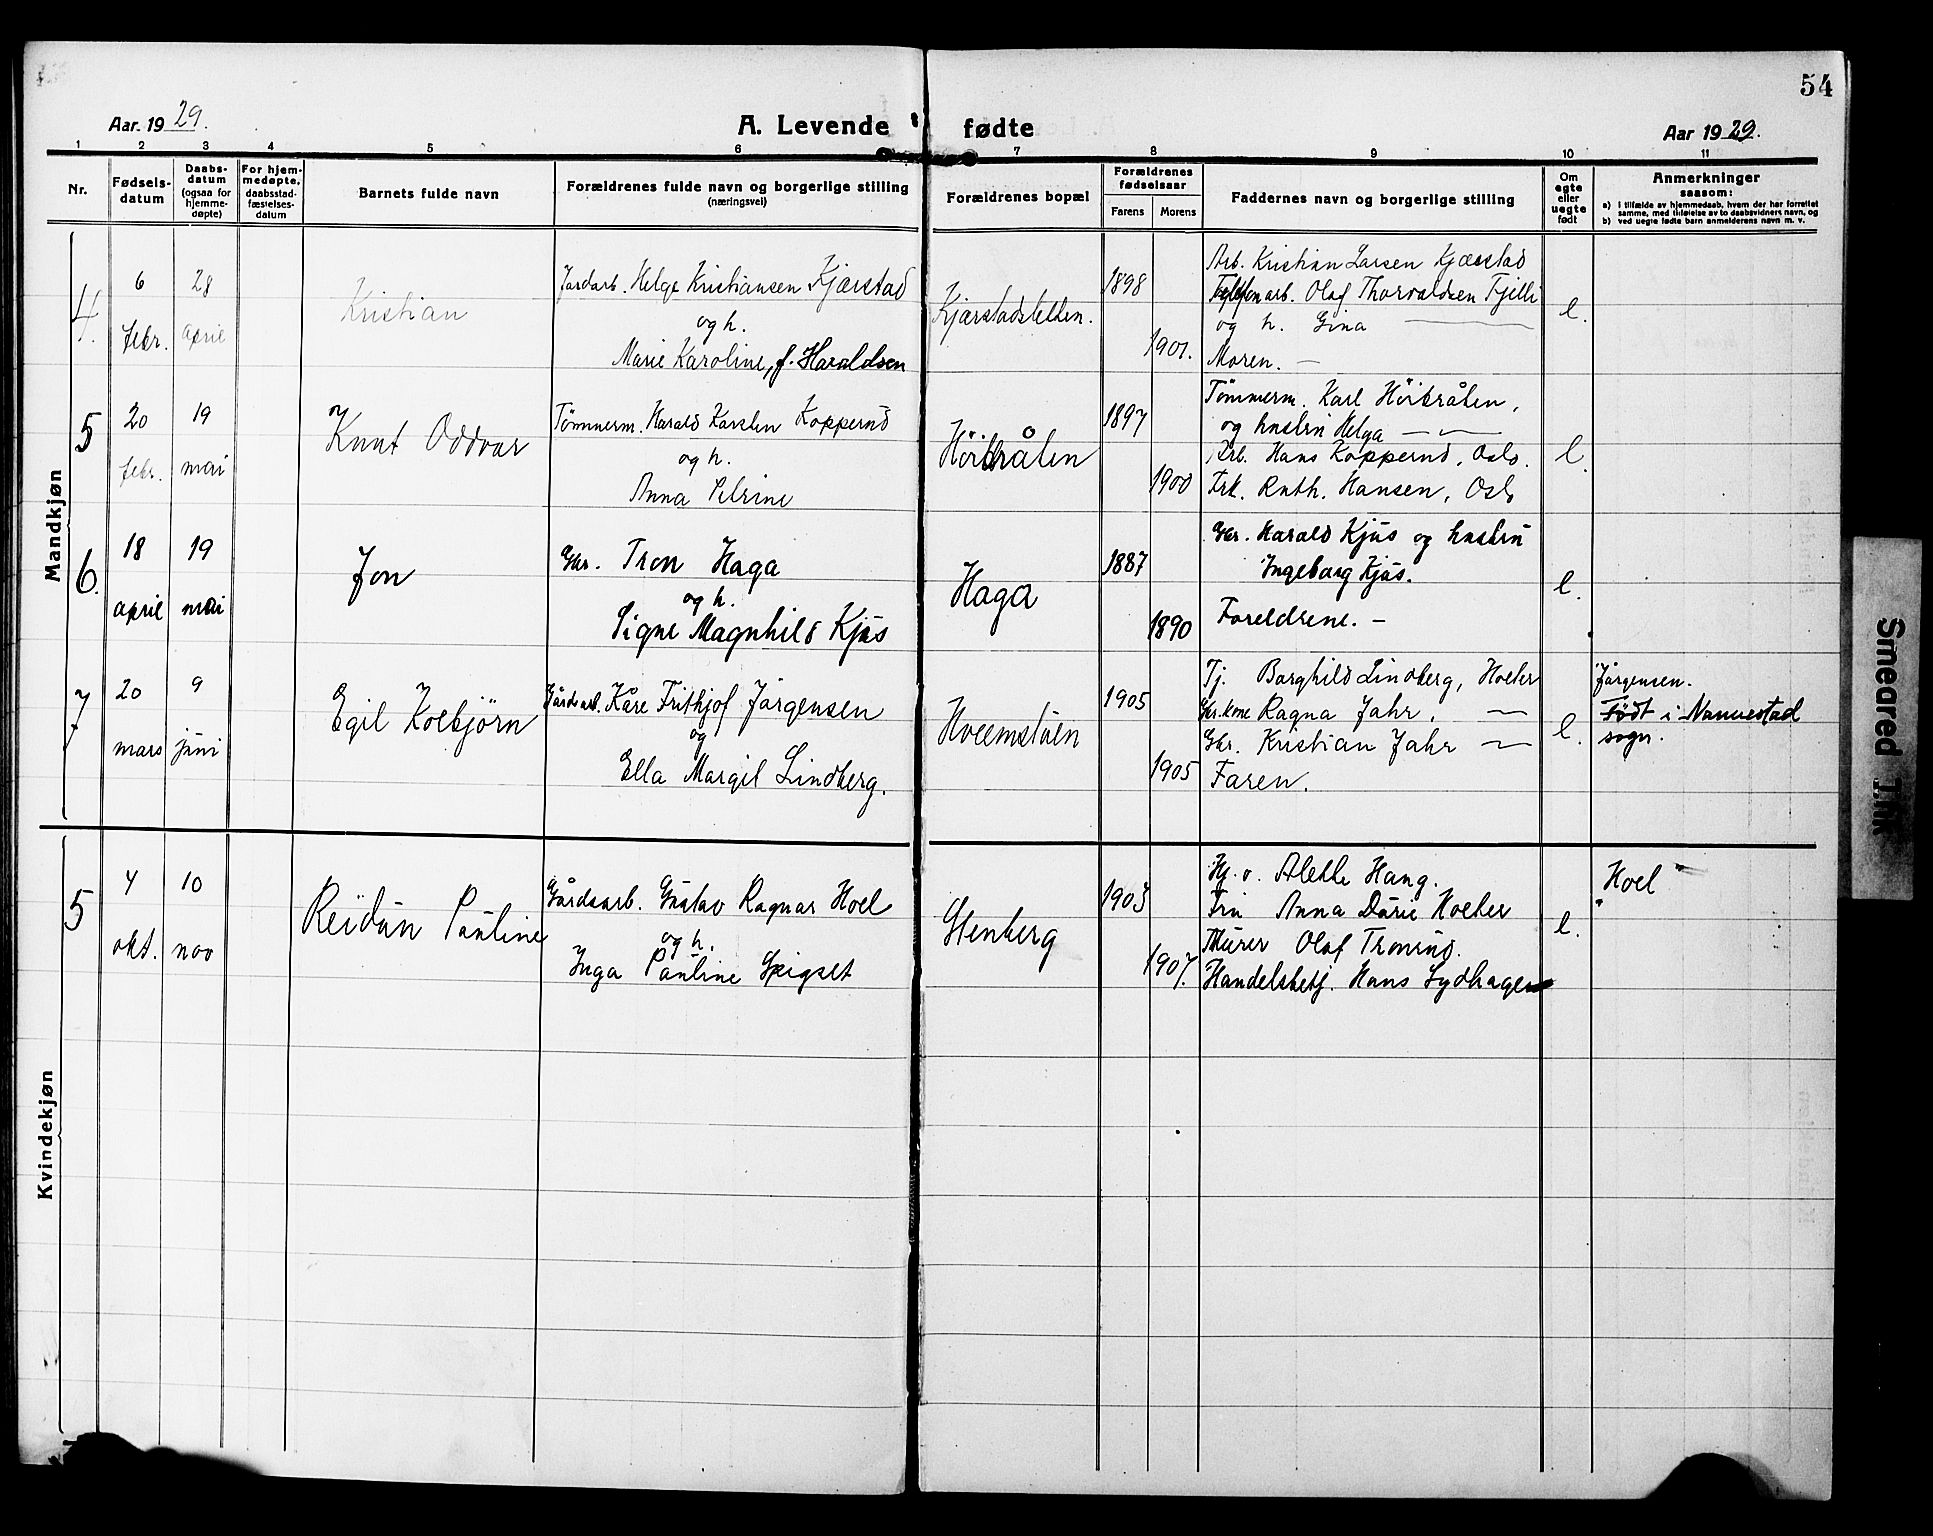 54
Aar. 1929.
A. Levende fødte
Aar 1929.
1 2 3 4 5 6 7 8 9 10 11
Nr.
Fødsels-
datum
Daabs-
datum
(ogsaa for
hjemme-
døpte)
For hjem-
medøpte,
daabsstad-
fæstelses-
datum
Barnets fulde navn
Forældrenes fulde navn og borgerlige stilling
(næringsvei)
Forældrenes bopæl
Forældrenes
fødselsaar
Farens Morens
Faddernes navn og borgerlige stilling
Om
egte
eller
uegte
født
Anmerkninger
saasom:
a) i tilfælde av hjemmedaab, hvem der har forrettet
samme, med tilføielse av to daabsvidners navn, og
b) ved uegte fødte barn anmelderens navn m. v.
Mandkjøn
4.
6
febr.
28
april
Kristian
Jordarb. Helge Kristiansen Kjærstad
og h.
Marie Karoline, f. Haraldsen
Kjærstadstellen.
1898
1901.
Arb. Kristian Larsen Kjærstad
Telefonarb. Olaf Thorvaldsen Fjelli
og h. Gina —
Moren. —
e.
5
20
febr.
19
mai
Knut Oddvar
Tømmerm. Harald Karsten Koppernd
og h.
Anna Petrine
Höibråten
1897
1900
Tømmerm. Karl Höibråten,
og hustru Helga — —
Arb. Hans Koppernd, Oslo.
Frk. Ruth. Hansen, Oslo
e.
6.
18
april
19
mai
Jon
Gbr. Tron Haga
og h.
Signe Magnhild Kjus
Haga
1887
1890
Gbr. Harald Kjus og hustru
Ingeborg Kjus.
Foreldrene. —
e.
7
20
mars
9
juni
Egil Kolbjörn
Gårdsarb. Kåre Frithjof Jörgensen
og
Ella Margit Lindberg.
Hveemstuen
1905
1905
Tj. Borghild Lindberg, Holter
Gbr.kone Ragna Jahr. —
Gbr. Kristian Jahr —
Faren.
e.
Jörgensen.
Født i Nannestad
sogn.
Kvindekjøn
5
4
okt.
10
nov
Reidun Pauline
Gårdsarb. Gustav Ragnar Hoel
og h.
Inga Pauline Spigset
Stenberg
1903
1907.
Hj.v. Alette Haug.
Fru Anna Dårie Holter
Murer Olaf Tronrud.
Handelsbetj. Hans Lydhagen
e.
Hoel
Smeared Ink